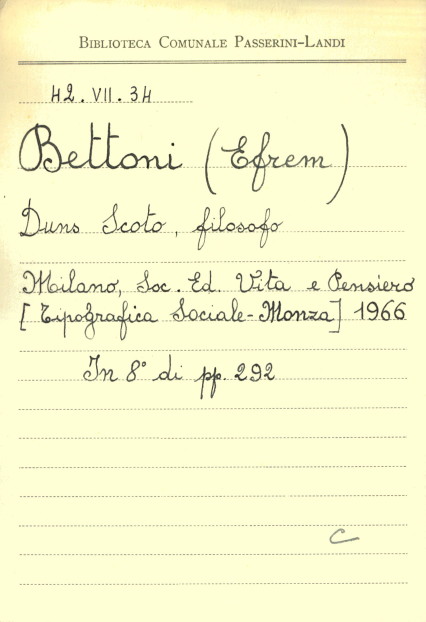 BIBLIOTECA COMUNALE PASSERINI-LANDI
42.VII.34
Bettoni (Efrem)
Duns Scoto, filosofo
Milano, Soc. Ed. Vita e Pensiero
[Tipografica Sociale-Monza] 1966
In 8° di pp. 292
C